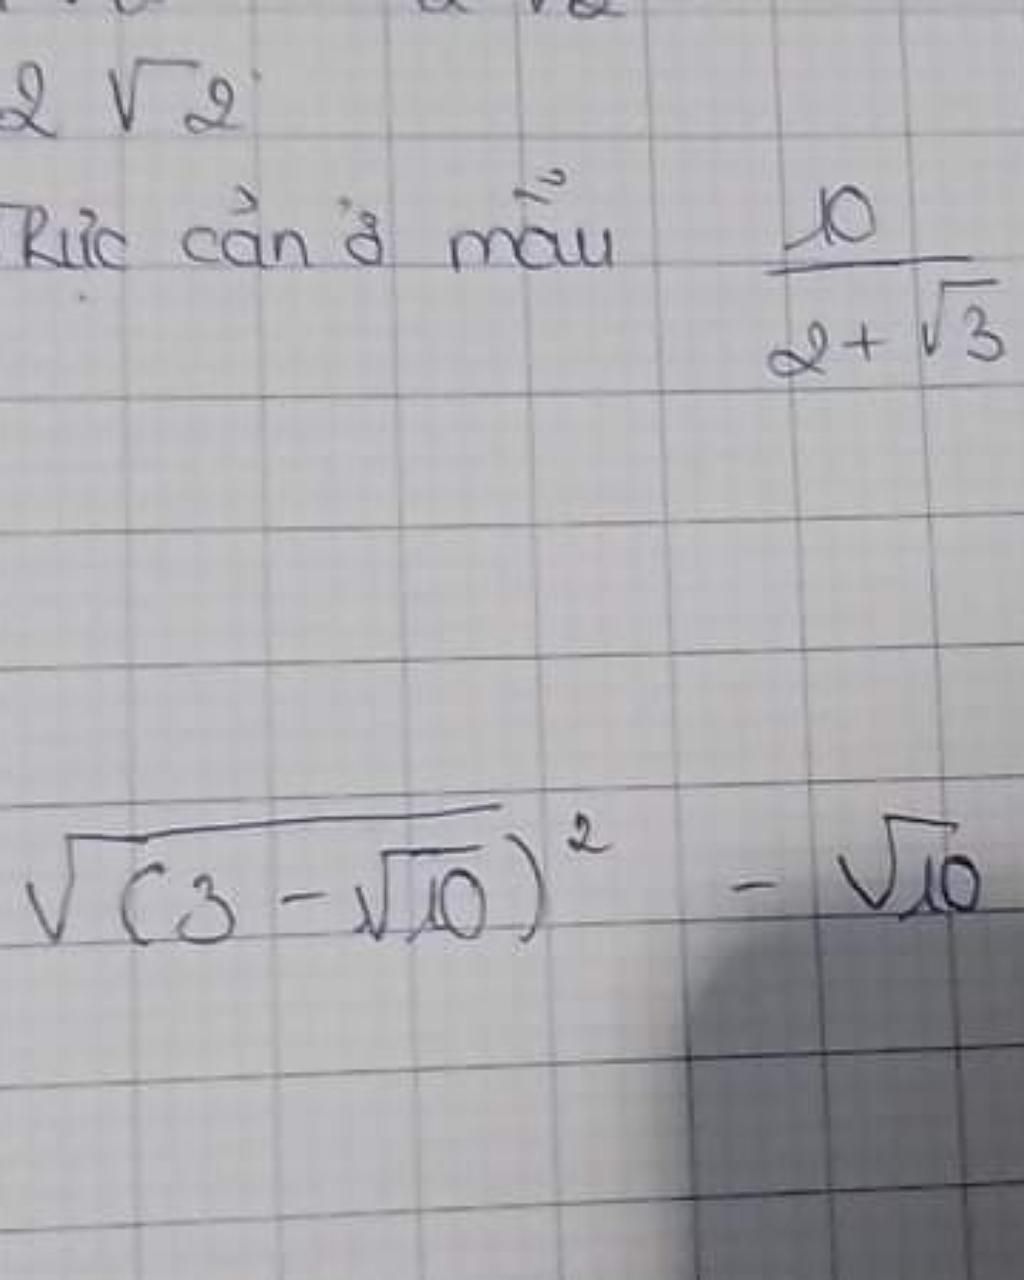 2 √2
Trục căn ở mẫu 10/(2 + √3)
√(3 - √10)² - √10